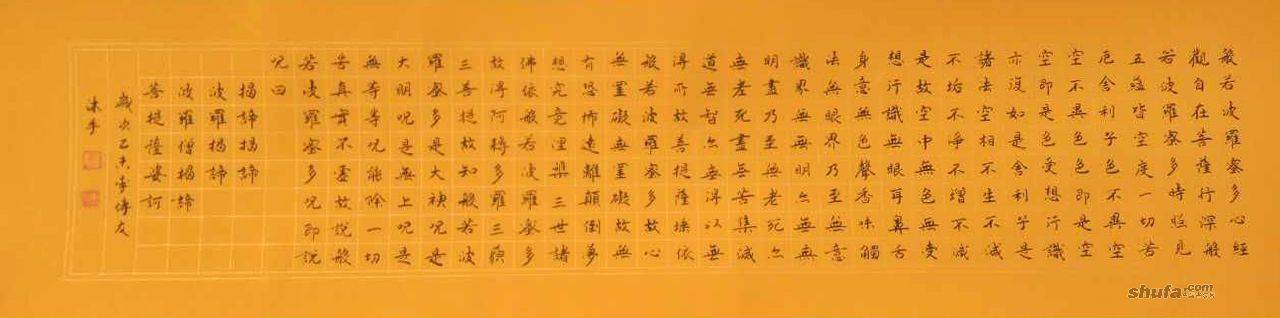 般若波羅蜜多心經
觀自在菩薩行深般
若波羅蜜多時照見
五蘊皆空度一切苦
厄舍利子色不異空
空不異色色即是空
空即是色受想行識
亦復如是舍利子是
諸法空相不生不滅
不垢不淨不增不減
是故空中無色無受
想行識無眼耳鼻舌
身意無色聲香味觸
法無眼界乃至無意
識界無無明亦無無
明盡乃至無老死亦
無老死盡無苦集滅
道無智亦無得以無
得所故菩提薩埵依
般若波羅蜜多故心
無罣礙無罣礙故無
有恐怖遠離顛倒夢
想究竟涅槃三世諸
佛依般若波羅蜜多
故得阿耨多羅三藐
三菩提故知般若波
羅蜜多是大神咒是
大明咒是無上咒是
無等等咒能除一切
苦真實不虛故說般
若波羅蜜多咒即說
咒曰
揭諦揭諦
波羅揭諦
波羅僧揭諦
菩提薩婆訶
歲次乙未李傳友
沐手
shufa.com